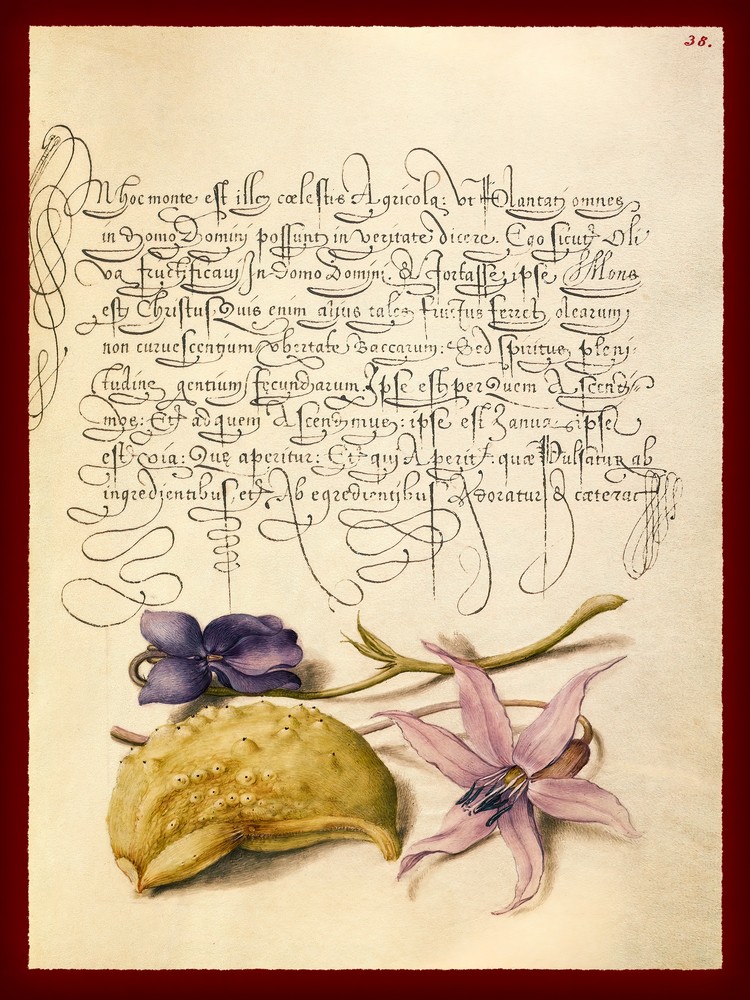 38.
IN hoc monte est ille cœlestis Agricola: Vt Plantati omnes
in Domo Domini possunt in veritate dicere. Ego sicut Oli
va fructificavi In domo Domini. & Fortasse ipse Mons
est Christus Quis enim alius tales fructus ferret olearum
non curvescentium Vbertate Baccarum: Sed spiritus pleni-
tudine gentium fecundarum. Ipse est per Quem Ascendi-
mus: Et ad quem Ascendimus: ipse est Ianua ipse
est via: Quę aperitur: Et qui Aperit: quæ Pulsatur ab
ingredientibus, et Ab egredientibus Adoratur & cætera